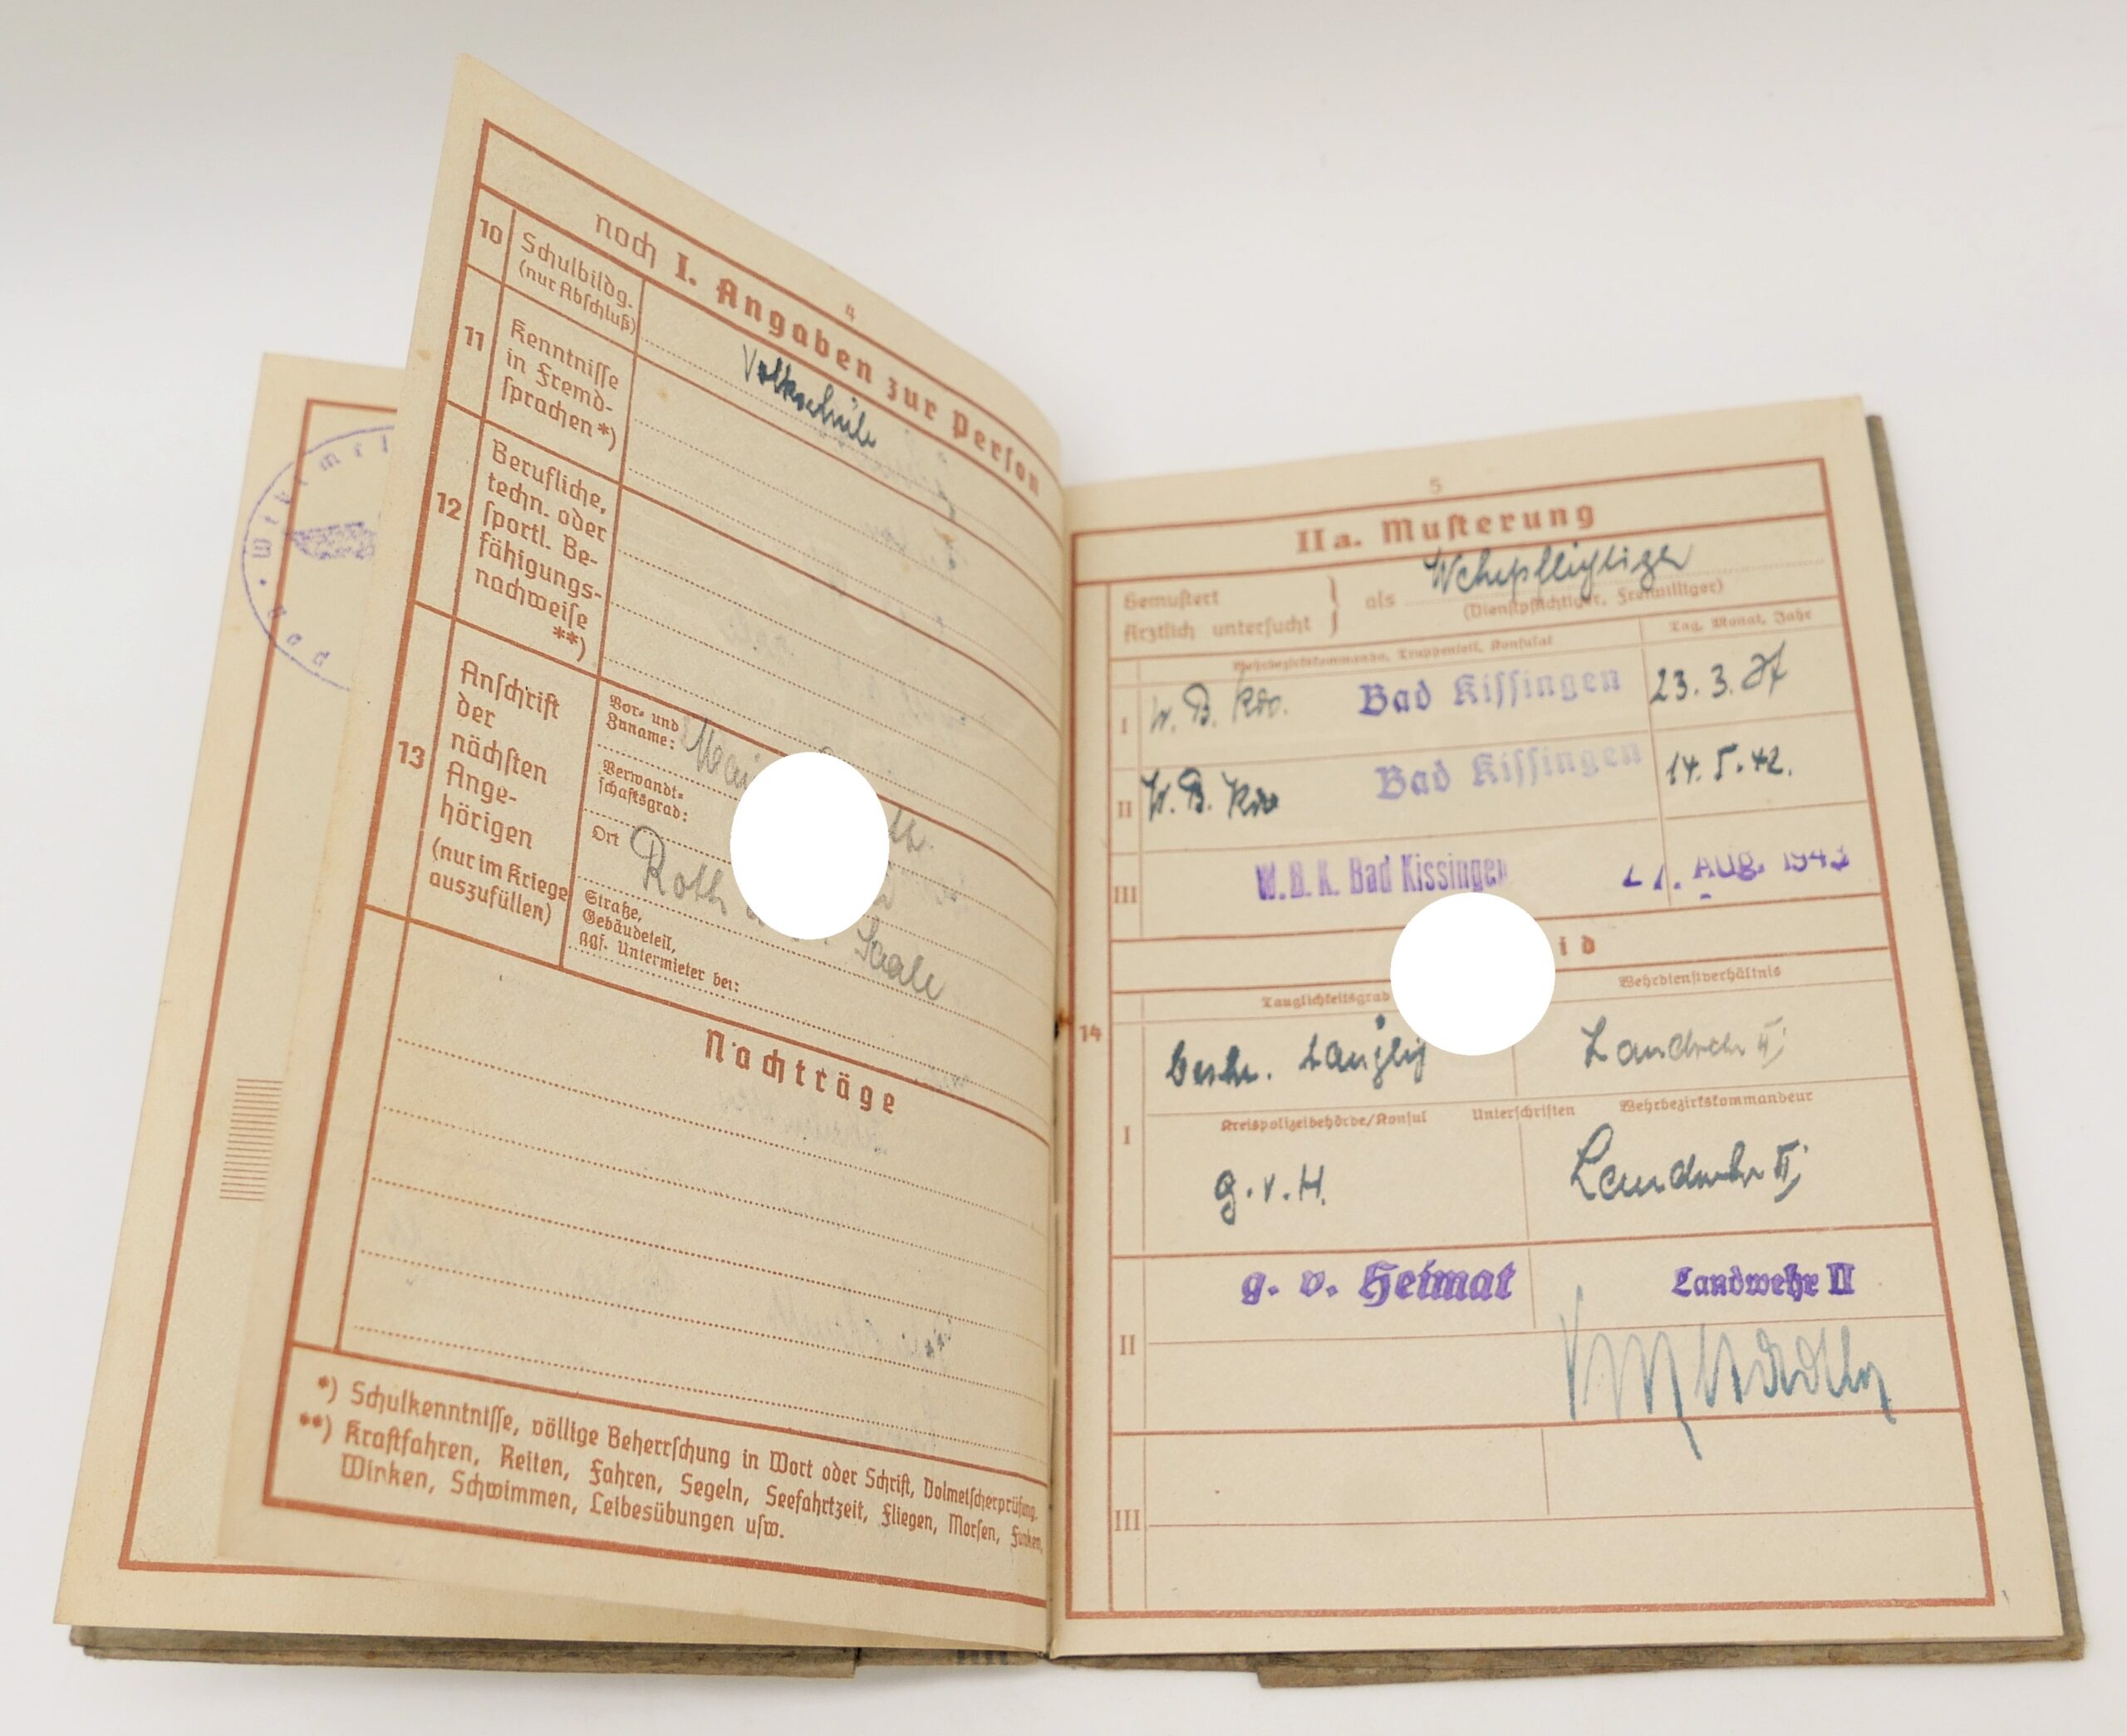 4
noch I. Angaben zur Person
10 Schulbildg.
(nur Abschluß)
Volksschule
11 Kenntnisse
in Fremd-
sprachen *)
12 Berufliche,
techn. oder
sportl. Be-
fähigungs-
nachweise
**)
13 Anschrift
der
nächsten
Ange-
hörigen
(nur im Kriege
auszufüllen)
Vor- und
Zuname:
Verwandt-
schaftsgrad:
Ort Roth Saale
Straße,
Gebäudeteil,
ggf. Untermieter bei:
Nachträge
*) Schulkenntnisse, völlige Beherrschung in Wort oder Schrift, Dolmetscherprüfung.
**) Kraftfahren, Reiten, Fahren, Segeln, Seefahrtzeit, Fliegen, Morsen, Funken,
Winken, Schwimmen, Leibesübungen usw.
5
IIa. Musterung
Gemustert
Ärztlich untersucht
als Wehrpflichtiger
(Dienstpflichtiger, Freiwilliger)
Wehrbezirkskommando, Truppenteil, Konsulat
Tag, Monat, Jahr
I W. B. Kdo. Bad Kissingen 23. 3.
II W. B. Kdo Bad Kissingen 14. 5. 42.
III W.B.K. Bad Kissingen AUG. 1943
id
14
Tauglichkeitsgrad
Wehrdienstverhältnis
Landwehr II
Kreispolizeibehörde/Konsul Unterschriften Wehrbezirkskommandeur
I g. v. H. Landwehr II
g. v. Heimat Landwehr II
II
III